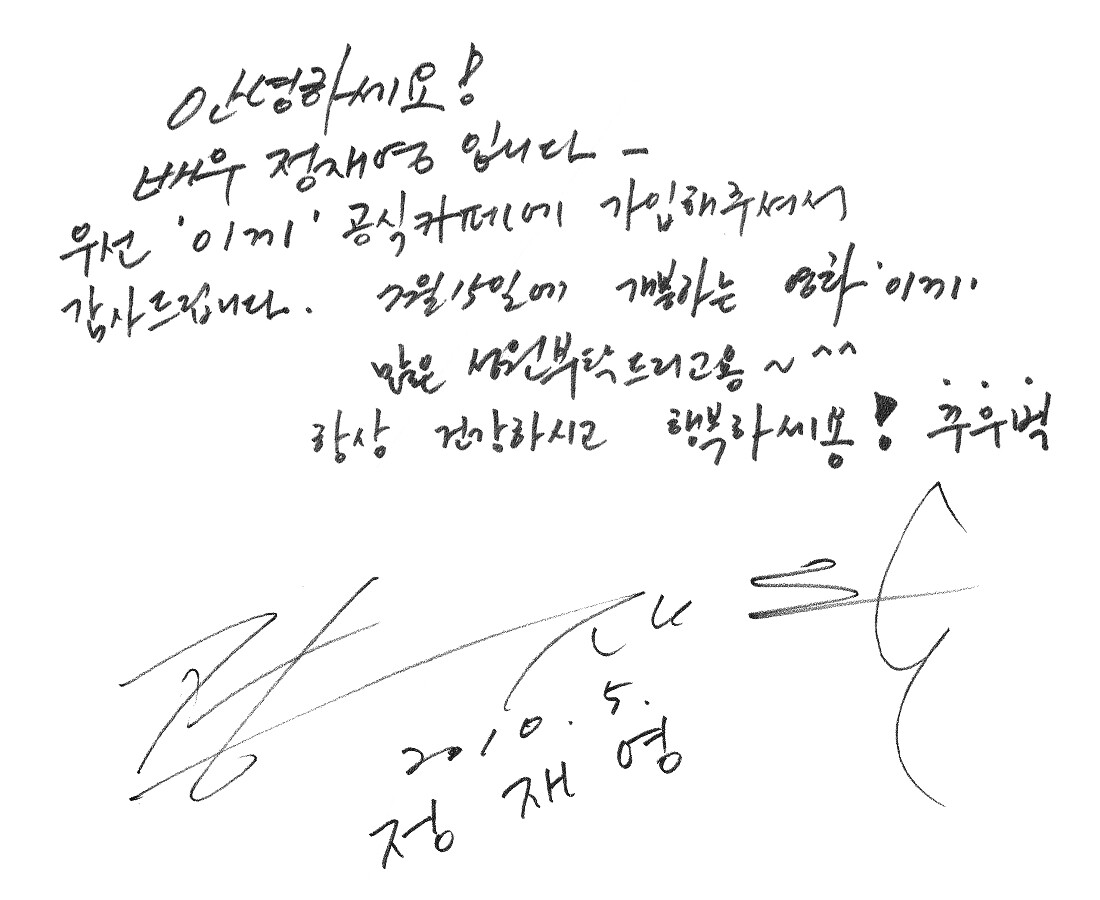 안녕하세요!
배우 정재영 입니다 -
우선 '이끼' 공식카페에 가입해주셔서
감사드립니다. 7월15일에 개봉하는 영화 '이끼'
많은 성원부탁드리고용~ ^^
항상 건강하시고 행복하세용! 꾸우벅
2010. 5.
정 재 영